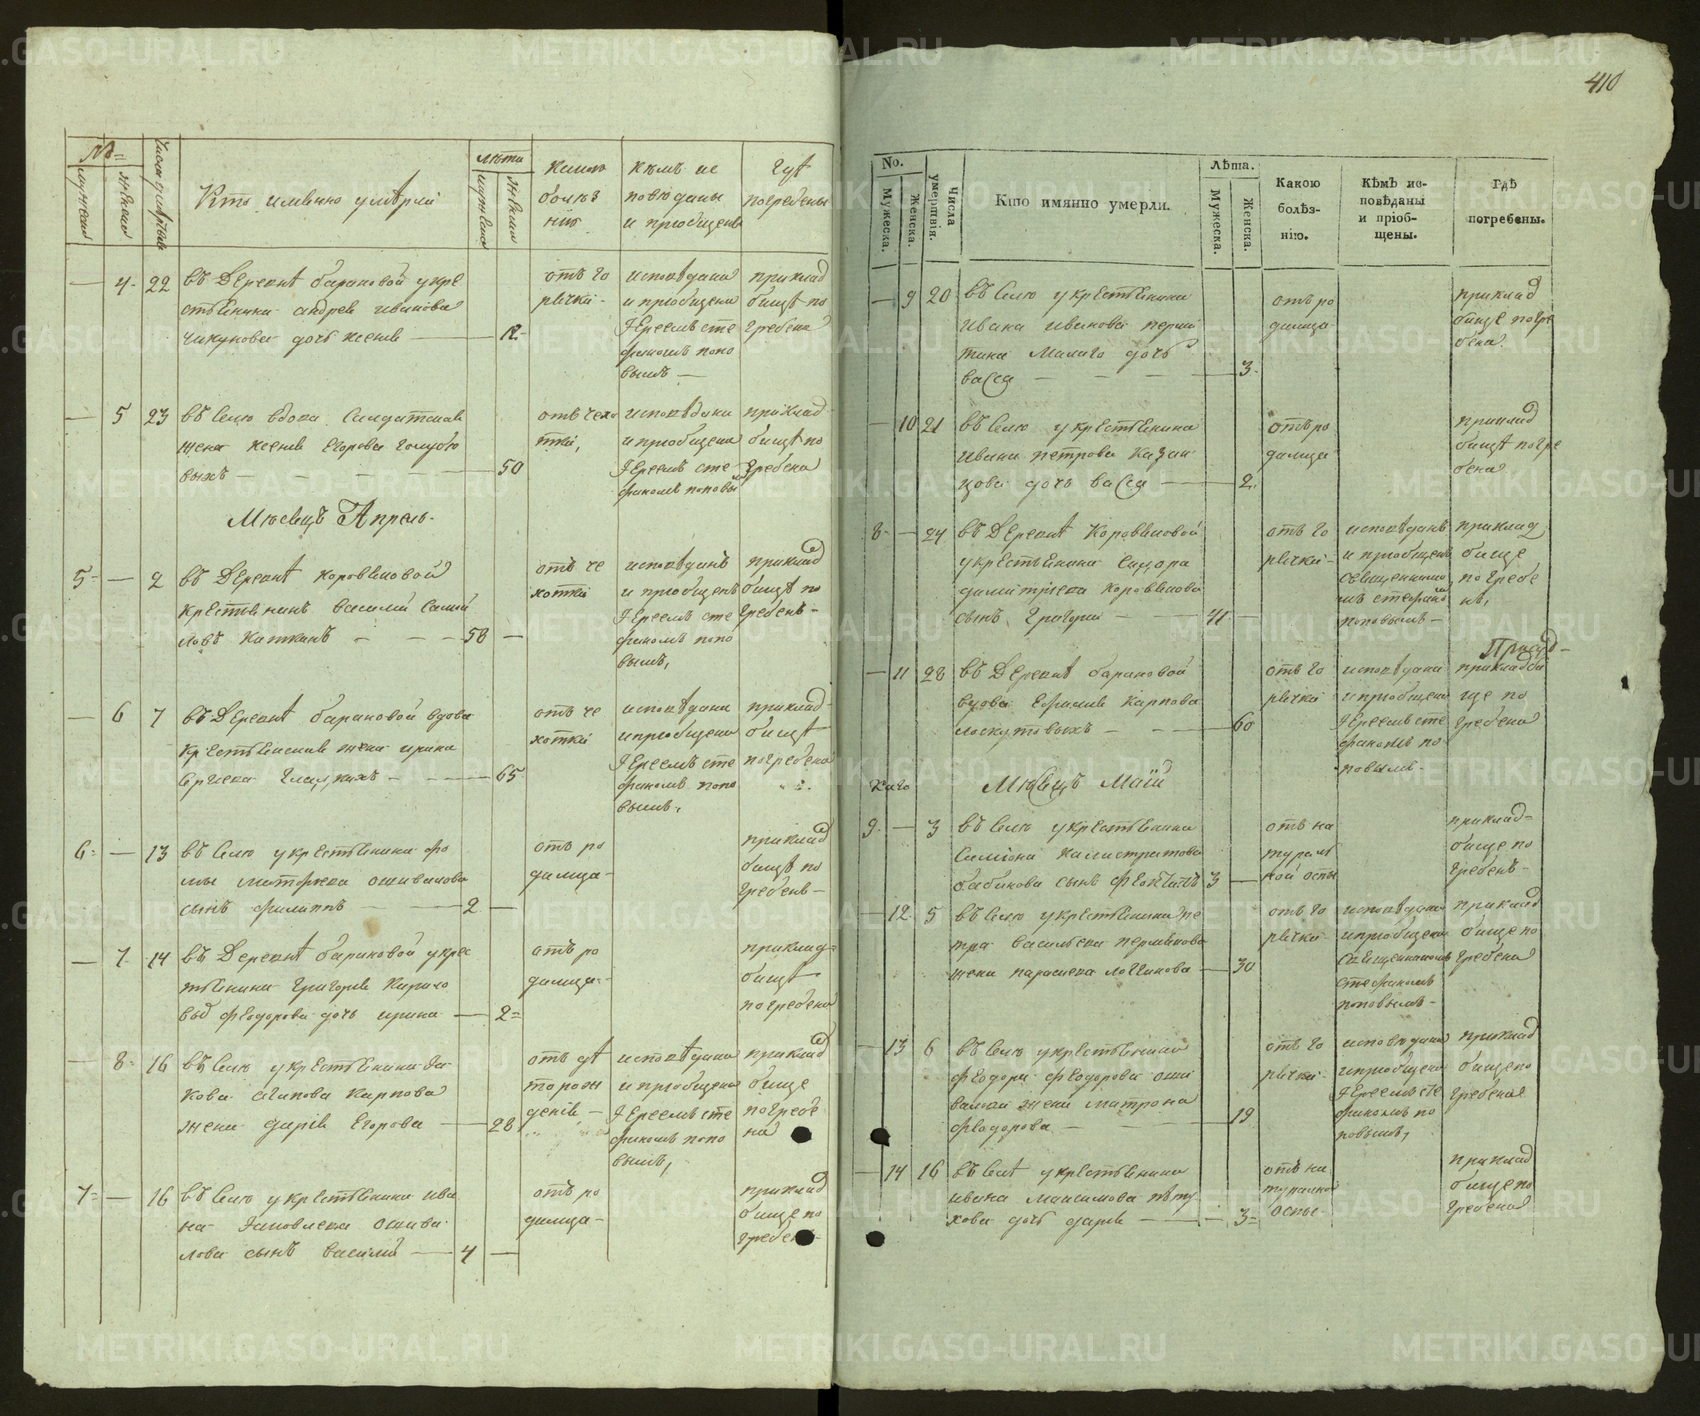 410
№
мужеска
женска
Числа умертвія
Кто имянно умерли
лѣта
мужеска
женска
Какою
болѣз
нію
Кѣмъ ис
повѣданы
и пріобщены
Гдѣ
погребены
4 22 въ Деревнѣ барановой у кре
стьянина андрея иванова
чикунова дочь ксенія — 12
отъ го
рячки
исповѣдана
и пріобщена
Іереемъ сте
фаномъ попо
вымъ
приклад
бищѣ по
гребена
5 23 въ селѣ вдова Солдатская
жена ксенія Егорова
выхъ — 50
отъ чехо
тки
исповѣдана
и пріобщена
Іереемъ сте
фаномъ поповы
приклад
бищѣ по
гребена
Мѣсяцъ Апрель
5 — 2 въ Деревнѣ коровяковой
крестьянинъ василій самой
ловъ — 58 —
отъ че
хотки
исповѣданъ
и пріобщенъ
Іереемъ сте
фаномъ попо
вымъ
приклад
бищѣ по
гребенъ
— 6 7 въ Деревнѣ барановой вдова
крестьянская жена ирина
— 65
отъ че
хотки
исповѣдана
и пріобщена
Іереемъ сте
фаномъ попо
вымъ
приклад
бищѣ
погребена
6 — 13 въ селѣ у крестьянина фо
мы матѳеева ошивалова
сынъ филиппъ — 2 —
отъ ро
димца
приклад
бищѣ по
гребенъ
— 7 14 въ Деревнѣ барановой у крес
тьянина григорья Кирило
ва федорова дочь ирина — 2
отъ ро
димца
приклад
бищѣ
погребена
— 8 16 въ селѣ у крестьянина Яа
кова Карпова
жена дарія Егорова — 28
отъ дѣ
тороды
денія
исповѣдана
и пріобщена
Іереемъ сте
фаномъ попо
вымъ
приклад
бище
погребе
на
7 — 16 въ селѣ у крестьянина ива
на Яковлева ошива
лова сынъ василій — 4 —
отъ ро
димца
приклад
бище по
гребенъ
No.
Мужеска.
Женска.
Числа
умертвія.
Кто имянно умерли.
Лѣта.
Мужеска.
Женска.
Какою
болѣз-
нію.
Кѣмъ ис-
повѣданы
и пріоб-
щены.
Гдѣ
погребены.
— 9 20 въ селѣ у крестьянина
ивана иванова першн
тина малаго дочь
васса — 3
отъ ро
димца
приклад
бище погре
бена
— 10 21 въ селѣ у крестьянина
ивана петрова казан
цова дочь васса — 2
отъ ро
димца
приклад
бищѣ погре
бена
8 — 24 въ Деревнѣ Коровяковой
у крестьянина Сидора
димитріева коровякова
сынъ Григорій — 41 —
отъ го
рячки
исповѣданъ
и пріобщенъ
священнико
мъ стефано
поповымъ
приклад
бище
погребе
нъ
— 11 28 въ Деревнѣ барановой
вдова Карпова
лоскутовыхъ — 60
отъ го
рячки
исповѣдана
и пріобщена
Іереемъ сте
фаномъ по
повымъ
приклад
ще по
гребена
Мѣсяцъ Маій
9 — 3 въ селѣ у крестьянина
Симіона Калистратова
бабинова сынъ — 3 —
отъ на
турал
ной оспы
приклад
бище по
гребенъ
— 12 5 въ селѣ у крестьянина пе
тра васильева
жена параскева логинова — 30
отъ го
рячки
исповѣдана
и пріобщена
священникомъ
стефаномъ
поповымъ
приклад
бище по
гребена
— 13 6 въ селѣ у крестьянина
федора федорова оши
валова жена матрона
федорова — 19
отъ го
рячки
исповѣдана
и пріобщена
Іереемъ сте
фаномъ по
повымъ
приклад
бище по
гребена
— 14 16 въ селѣ у крестьянина
ивана Максимова пѣту
хова дочь дарія — 3
отъ на
туралной
оспы
приклад
бище по
гребена
METRIKI.GASO-URAL.RU